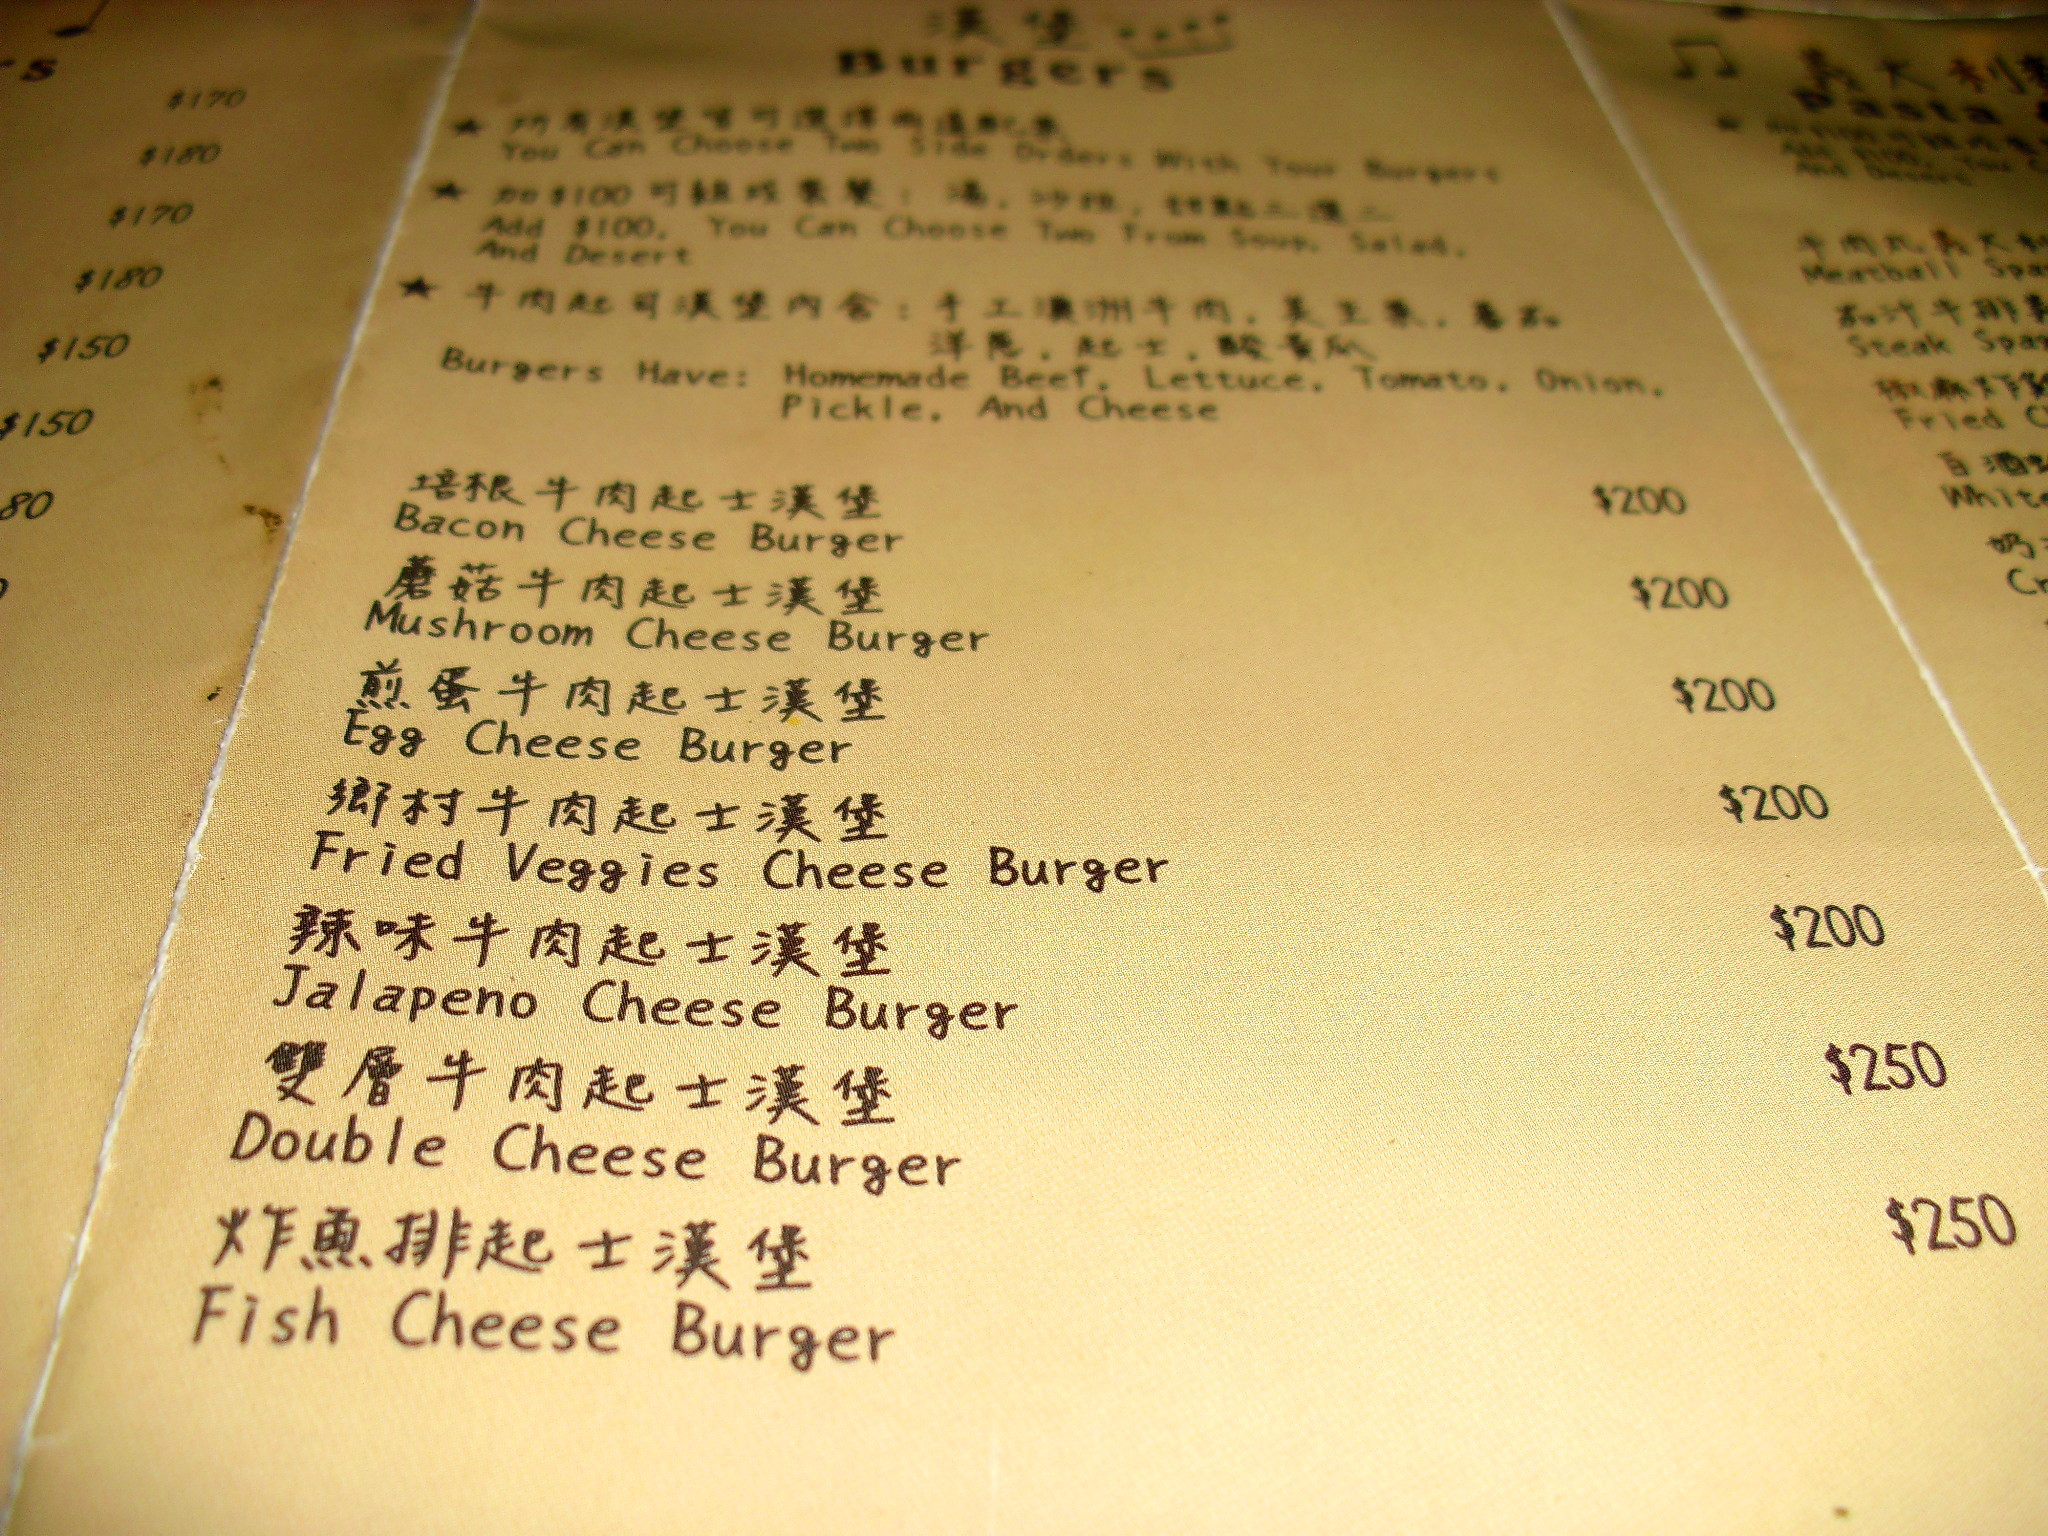 $170
$180
$170
$180
$150
$150
80
漢堡
Burgers
★ 所有漢堡皆可選擇兩道配菜
You Can Choose Two Side Orders With Your Burgers
★ 加$100可組成套餐：湯，沙拉，甜點三選二
Add $100, You Can Choose Two From Soup, Salad,
And Desert
★ 牛肉起司漢堡內含：手工澳洲牛肉，美生菜，番茄
洋蔥，起士，酸黃瓜
Burgers Have: Homemade Beef, Lettuce, Tomato, Onion,
Pickle, And Cheese
培根牛肉起士漢堡 $200
Bacon Cheese Burger
蘑菇牛肉起士漢堡 $200
Mushroom Cheese Burger
煎蛋牛肉起士漢堡 $200
Egg Cheese Burger
鄉村牛肉起士漢堡 $200
Fried Veggies Cheese Burger
辣味牛肉起士漢堡 $200
Jalapeno Cheese Burger
雙層牛肉起士漢堡 $250
Double Cheese Burger
炸魚排起士漢堡 $250
Fish Cheese Burger
義大利
Pasta
And Desert
牛肉丸義大利
Meatball Spa
茄汁牛排
Steak Spa
椒麻炸雞
Fried C
白酒
White
奶
Cr